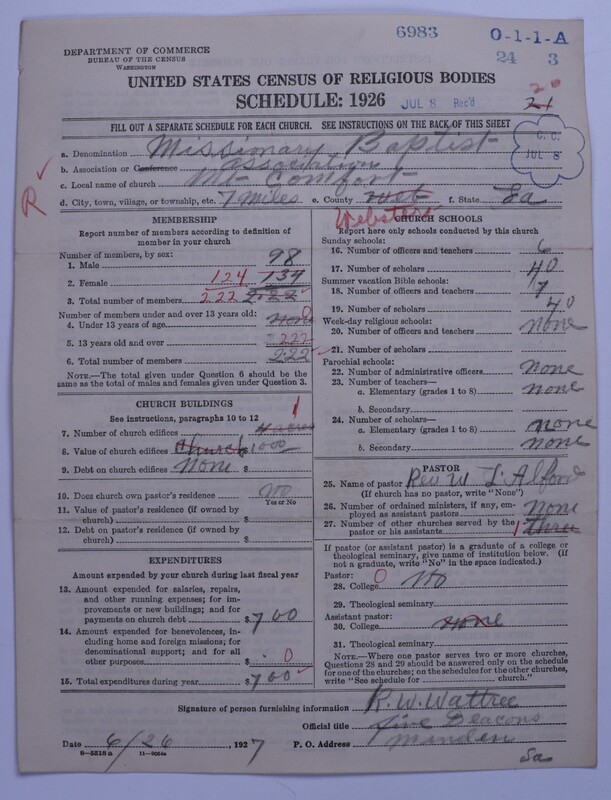 6983
O-1-1-A
24 3
DEPARTMENT OF COMMERCE
BUREAU OF THE CENSUS
WASHINGTON
UNITED STATES CENSUS OF RELIGIOUS BODIES
SCHEDULE: 1926 JUL 8 Rec'd
20
21
FILL OUT A SEPARATE SCHEDULE FOR EACH CHURCH. SEE INSTRUCTIONS ON THE BACK OF THIS SHEET
C. C.
JUL 8
a. Denomination Missionary Baptist
b. Association or Conference association
c. Local name of church Mt Comfort
R
d. City, town, village, or township, etc. 7 miles e. County f. State La
Webster
MEMBERSHIP
Report number of members according to definition of member in your church
Number of members, by sex:
1. Male 98
2. Female 124 134
3. Total number of members 222 222
Number of members under and over 13 years old:
4. Under 13 years of age none 0
5. 13 years old and over 222
6. Total number of members 222
NOTE.—The total given under Question 6 should be the same as the total of males and females given under Question 3.
CHURCH BUILDINGS
See instructions, paragraphs 10 to 12
7. Number of church edifices 1
8. Value of church edifices Church $1000
9. Debt on church edifices None $
10. Does church own pastor's residence no
Yes or No
11. Value of residence (if owned by church) $
12. Debt on pastor's residence (if owned by church) $
EXPENDITURES
Amount expended by your church during last fiscal year
13. Amount expended for salaries, repairs, and other running expenses; for improvements or new buildings; and for payments on church debt $700
14. Amount expended for benevolences, including home and foreign missions; for denominational support; and for all other purposes $ 0
15. Total expenditures during year $700
CHURCH SCHOOLS
Report here only schools conducted by this church
Sunday schools:
16. Number of officers and teachers 6
17. Number of scholars 40
Summer vacation Bible schools:
18. Number of officers and teachers 7
19. Number of scholars 40
Week-day religious schools:
20. Number of officers and teachers none
21. Number of scholars
Parochial schools:
22. Number of administrative officers none
23. Number of teachers—
a. Elementary (grades 1 to 8) none
b. Secondary
24. Number of scholars—
a. Elementary (grades 1 to 8) none
b. Secondary none
PASTOR
25. Name of pastor Rev W L Alford
(If church has no pastor, write "None")
26. Number of ordained ministers, if any, employed as assistant pastors None
27. Number of other churches served by the pastor or his assistants 1 Three
If pastor (or assistant pastor) is a graduate of a college or theological seminary, give name of institution below. (If not a graduate, write "No" in the space indicated.)
Pastor:
28. College 0 No
29. Theological seminary
Assistant pastor:
30. College none
31. Theological seminary
NOTE.—Where one pastor serves two or more churches, Questions 28 and 29 should be answered only on the schedule for one of the churches; on the schedules for the other churches, write "See schedule for church."
Signature of person furnishing information R. W. Wattree
Official title five Deacons
Date 6/26, 1927 P. O. Address Minden
La
8-5318a 11-9064a